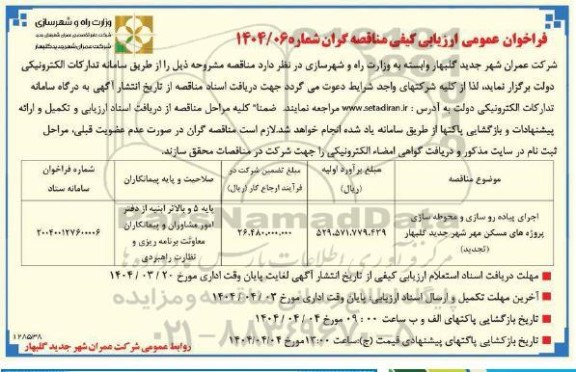 وزارت راه و شهرسازی
شرکت عمران شهر جدید گلبهار
فراخوان عمومی ارزیابی کیفی مناقصه گران شماره ۱۴۰۴/۰۶
شرکت عمران شهر جدید گلبهار وابسته به وزارت راه و شهرسازی در نظر دارد مناقصه مشروحه ذیل را از طریق سامانه تدارکات الکترونیکی
دولت برگزار نماید، لذا از کلیه شرکتهای واجد شرایط دعوت می گردد جهت دریافت اسناد مناقصه از تاریخ انتشار آگهی به درگاه سامانه
تدارکات الکترونیکی دولت به آدرس : www.setadiran.ir مراجعه نمایند. ضمنا" کلیه مراحل مناقصه از دریافت اسناد ارزیابی و تکمیل و ارائه
پیشنهادات و بازگشایی پاکتها از طریق سامانه یاد شده انجام خواهد شد.لازم است مناقصه گران در صورت عدم عضویت قبلی، مراحل
ثبت نام در سایت مذکور و دریافت گواهی امضاء الکترونیکی را جهت شرکت در مناقصات محقق سازند.
موضوع مناقصه
مبلغ برآورد اولیه (ریال)
مبلغ تضمین شرکت در فرآیند ارجاع کار (ریال)
صلاحیت و پایه پیمانکاران
شماره فراخوان سامانه ستاد
اجرای پیاده رو سازی و محوطه سازی
پروژه های مسکن مهر شهر جدید گلبهار
(تجدید)
۵۲۹،۵۷۱،۷۷۹،۴۳۹
۲۶،۴۸۰،۰۰۰،۰۰۰
پایه ۵ و بالاتر ابنیه از دفتر
امور مشاوران و پیمانکاران
معاونت برنامه ریزی و
نظارت راهبردی
۲۰۰۴۰۰۱۲۷۶۰۰۰۰۶
مهلت دریافت اسناد استعلام ارزیابی کیفی از تاریخ انتشار آگهی لغایت پایان وقت اداری مورخ ۲۰ / ۰۳ / ۱۴۰۴
آخرین مهلت تکمیل و ارسال اسناد ارزیابی، پایان وقت اداری مورخ ۰۳ / ۰۴ / ۱۴۰۴
تاریخ بازگشایی پاکتهای الف و ب ساعت ۰۹:۰۰ مورخ ۰۴ / ۰۴ / ۱۴۰۴
تاریخ بازگشایی پاکتهای پیشنهادی قیمت (ج):ساعت ۱۲:۰۰ مورخ ۱۴۰۴/۰۴/۰۴
روابط عمومی شرکت عمران شهر جدید گلبهار
۱۲۸۵۳۸
ParsNamadData
۰۲۱-۸۸۳۴۹۶۷۰-۵